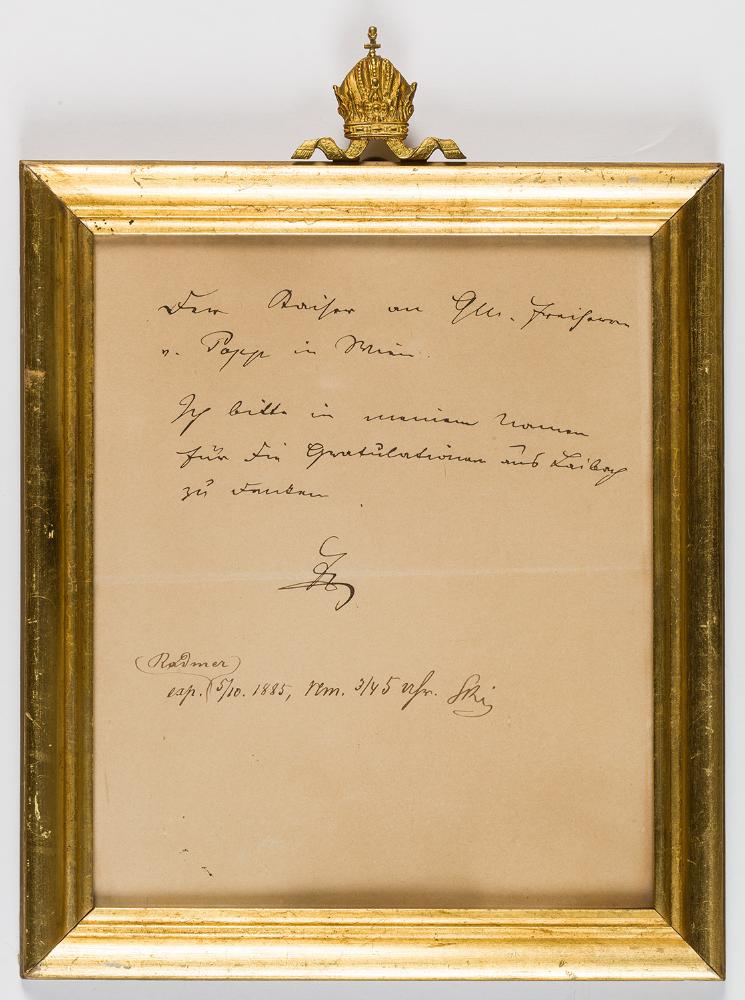 Der Kaiser an Glt. Freiherrn
v. Popp in Wien.
Ich bitte in meinem Namen
für die Gratulationen aus Laibach
zu danken
(Radmer)
exp. 5/10. 1885, Nm. 3/4 5 Uhr.